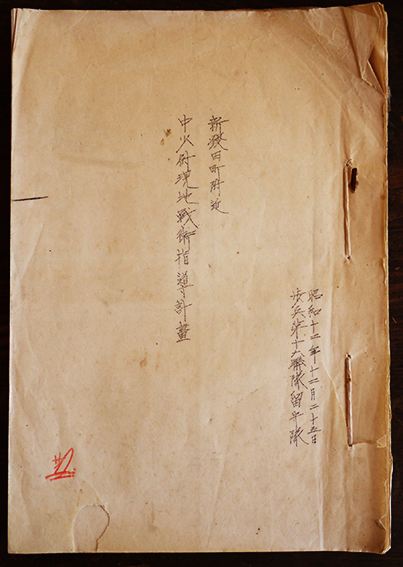 昭和十二年十二月二十五日
步兵第十六聯隊留守隊
新發田町附近
中少尉現地戰術指導計畫